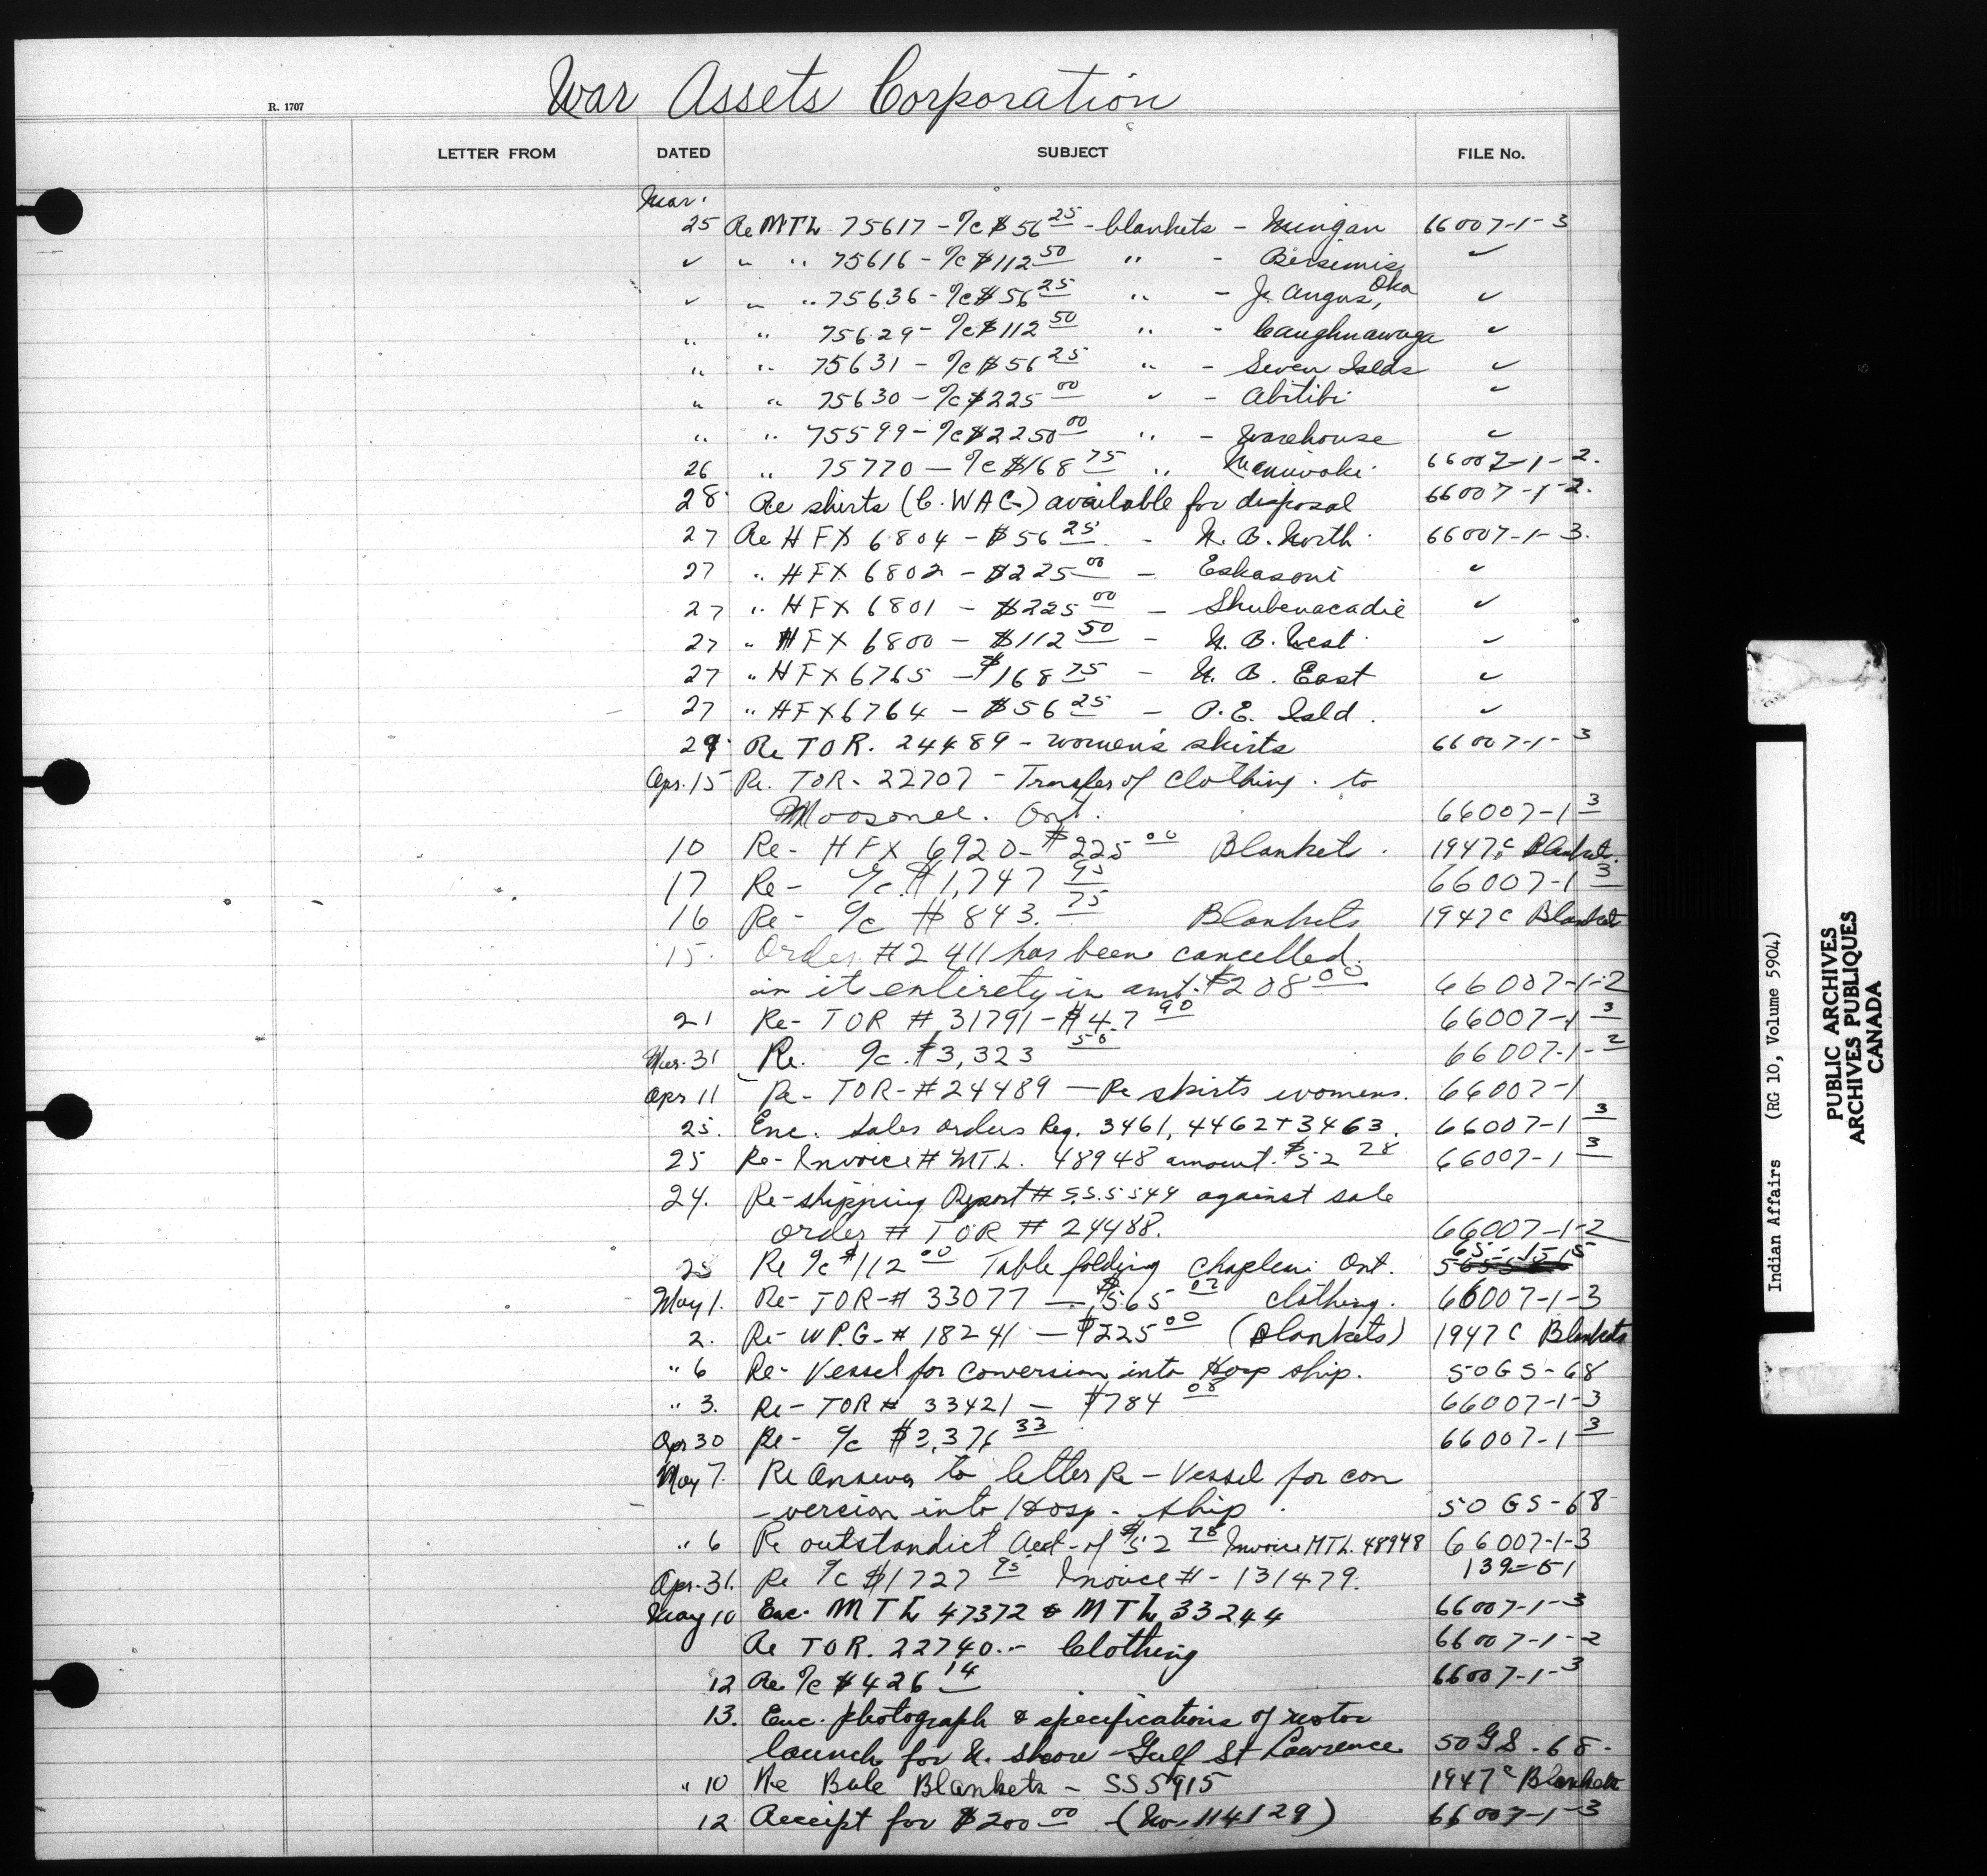 War Assets Corporation
R. 1707
LETTER FROM DATED SUBJECT FILE No.
Mar.
25 Re MTL 75617 - %c $56 25 - blankets - Mingan 66007-1-3
✓ " " 75616 - %c $112 50 " - Bersimis ✓
✓ " " 75636 - %c $56 25 " - J. Angus, Oka ✓
" " 75629 - %c $112 50 " - Caughnawaga ✓
" " 75631 - %c $56 25 " - Seven Islds ✓
" " 75630 - %c $225 00 ✓ - Abitibi ✓
" " 75599 - %c $2250 00 " - Warehouse ✓
26 " 75770 - %c $168 75 " Maniwaki 66007-1-2.
28 Re shirts (C.WAC.) available for disposal 66007-1-2.
27 Re HFX 6804 - $56 25 - N.B. North 66007-1-3.
27 " HFX 6802 - $225 00 - Eskasoni ✓
27 " HFX 6801 - $225 00 - Shubenacadie ✓
27 " HFX 6800 - $112 50 - N.B. West ✓
27 " HFX 6765 - $168 75 - N.B. East ✓
27 " HFX 6764 - $56 25 - P.E. Isld. ✓
29 Re TOR. 24489 - women's skirts 66007-1-3
Apr. 15 Re. TOR- 22707 - Transfer of clothing. to
Moosonee. Ont. 66007-1 3
10 Re- HFX 6920- $225 00 Blankets. 1947c Blankets.
17 Re- %c. $1,747 95 66007-1 3
16 Re- %c $843. 75 Blankets 1947c Blanket
15. Order #2411 has been cancelled.
in it entirety in amt. $208 00 66007-1-2
21 Re- TOR # 31791 - $47 90 66007-1 3
Mar. 31 Re. %c. $3,323 50 66007-1-2
Apr 11 Re- TOR- #24489 - Re skirts womens. 66007-1
25. Enc. Sales orders Reg. 3461, 4462 + 3463. 66007-1 3
25 Re- Invoice # MTL. 48948 amount. $52 28 66007-1 3
24. Re-shipping Report # S.S.5544 against sale
order # TOR # 24488. 66007-1-2
25 Re %c $112 00 Table folding Chapleau Ont. 65-15-15
May 1. Re- TOR-# 33077 - $565 02 clothing. 66007-1-3
2. Re- WPG- # 18241 - $225 00 (Blankets) 1947c Blankets
" 6 Re- Vessel for conversion into Hosp ship. 50GS-68
" 3. Re- TOR # 33421 - $784 08 66007-1-3
Apr 30 Re- %c $3,376 33 66007-1 3
May 7. Re Answer to letter Re - Vessel for con
-version into Hosp- ship. 50 GS-68
" 6 Re outstandict Acct- of $52 78 Invoice MTL. 48948 66007-1-3
Apr-31. Re %c $1727 95 Inouce # - 131479. 139-51
May 10 Enc. MTL 47372 & MTL 33244 66007-1-3
Re TOR. 22740.- Clothing 66007-1-2
12 Re %c $426 14 66007-1-3
13. Enc. photograph & specifications of motor
launch for N. shore Gulf St Lawrence 50GS-68-
" 10 Re Bale Blankets - SS5915 1947c Blankets
12 Receipt for $200 00 (No. 114129) 66007-1-3
Indian Affairs (RG 10, Volume 5904)
PUBLIC ARCHIVES
ARCHIVES PUBLIQUES
CANADA